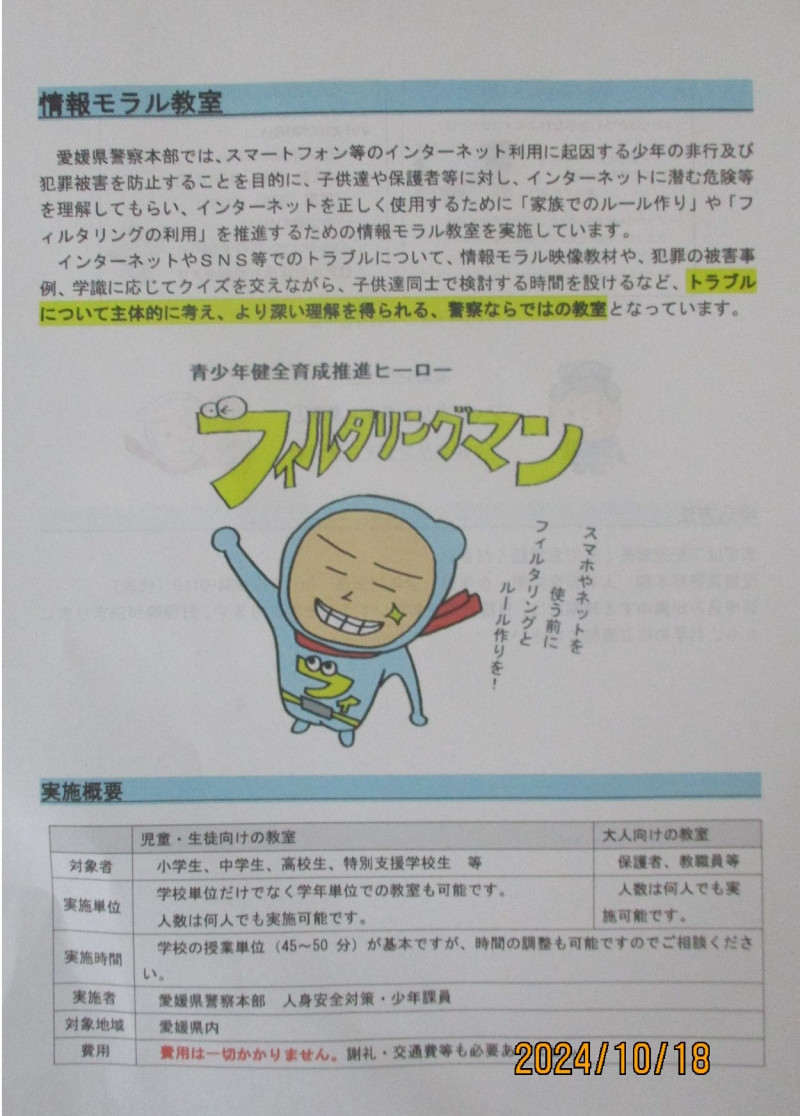 情報モラル教室
愛媛県警察本部では、スマートフォン等のインターネット利用に起因する少年の非行及び
犯罪被害を防止することを目的に、子供達や保護者等に対し、インターネットに潜む危険等
を理解してもらい、インターネットを正しく使用するために「家族でのルール作り」や「フ
ィルタリングの利用」を推進するための情報モラル教室を実施しています。
インターネットやSNS等でのトラブルについて、情報モラル映像教材や、犯罪の被害事
例、学識に応じてクイズを交えながら、子供達同士で検討する時間を設けるなど、トラブル
について主体的に考え、より深い理解を得られる、警察ならではの教室となっています。
青少年健全育成推進ヒーロー
フィルタリングマン
スマホやネットを
使う前に
フィルタリングと
ルール作りを!
フィ
実施概要
児童・生徒向けの教室 大人向けの教室
対象者 小学生、中学生、高校生、特別支援学校生 等 保護者、教職員等
実施単位 学校単位だけでなく学年単位での教室も可能です。 人数は何人でも実
人数は何人でも実施可能です。 施可能です。
実施時間 学校の授業単位(45~50 分)が基本ですが、時間の調整も可能ですのでご相談くださ
い。
実施者 愛媛県警察本部 人身安全対策・少年課員
対象地域 愛媛県内
費用 費用は一切かかりません。謝礼・交通費等も必要あ
2024/10/18